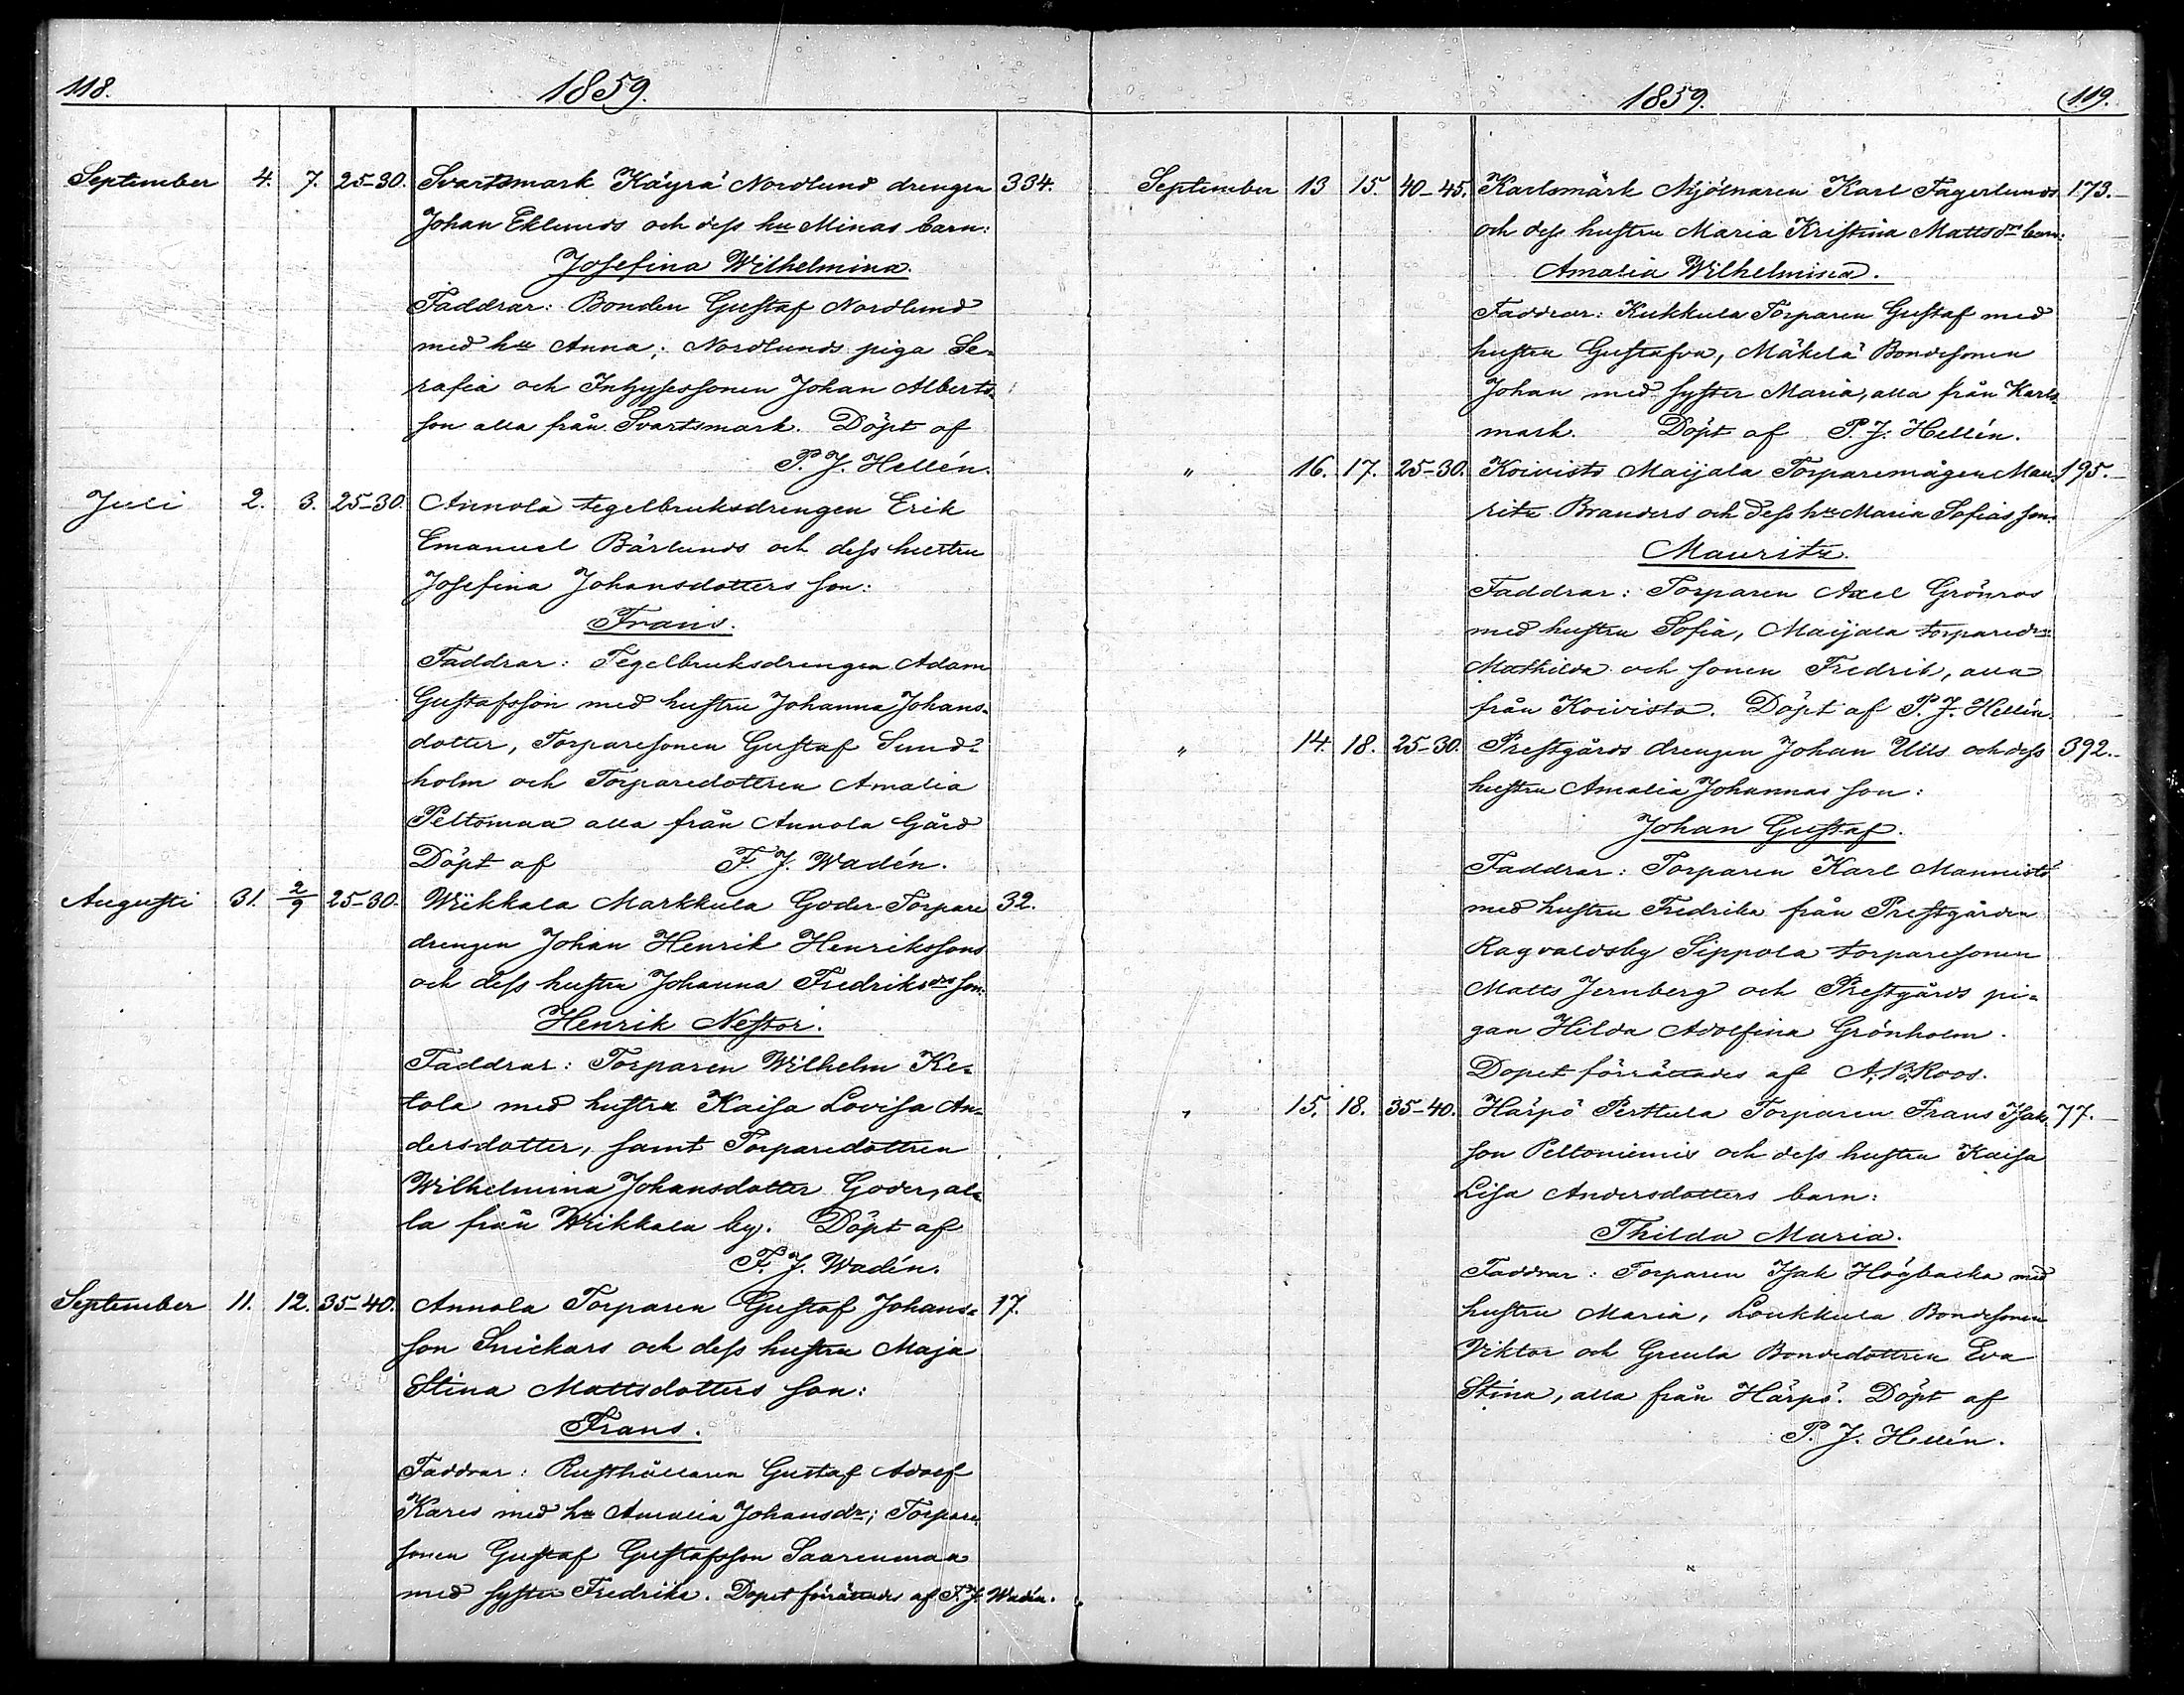 118.
1859.
September 4. 7. 25-30. Svartsmark Käyrä Nordlund drengen 334.
Johan Eklunds och dess hu Minas barn:
Josefina Wilhelmina.
Faddrar: Bonden Gustaf Nordlund
med hu Anna; Nordlunds piga Se-
rafia och Inhysessonen Johan Alberts-
son alla från Svartsmark. Döpt af
P. J. Hellén.
Juli 2. 3. 25-30. Annola tegelbruksdrengen Erik
Emanuel Bärlunds och dess hustru
Josefina Johansdotters son:
Frans.
Faddrar: Tegelbruksdrengen Adam
Gustafsson med hustru Johanna Johans-
dotter, Torparesonen Gustaf Sund-
holm och Torparedottren Amalia
Peltomaa alla från Annola Gård
Döpt af F. J. Wadén.
Augusti 31. 2/9 25-30. Wiikkala Markkula Goder Torpare 32.
drengen Johan Henrik Henrikssons
och dess hustru Johanna Fredriksdrs son:
Henrik Nestor.
Faddrar: Torparen Wilhelm Ke-
tola med hustru Kaisa Lovisa An-
dersdotter, samt Torparedottren
Wilhelmina Johansdotter Goder, al-
la från Wiikkala by. Döpt af
F. J. Wadén.
September 11. 12. 35-40. Annola Torparen Gustaf Johans- 17.
son Snickars och dess hustru Maja
Stina Mattsdotters son:
Frans.
Faddrar: Rusthållaren Gustaf Adolf
Kares med hu Amalia Johansdr; Torpare
sonen Gustaf Gustafsson Saarenmaa
med syster Fredrika. Dopet förrättades af F. J. Wadén.
1859.
119.
September 13 15. 40-45. Karlsmark Mjölnaren Karl Fagerlunds 173.
och dess hustru Maria Kristina Mattsdrs barn:
Amalia Wilhelmina.
Faddrar: Kukkula Torparen Gustaf med
hustru Gustafva, Mäkelä Bondesonen
Johan med syster Maria, alla från Karls-
mark. Döpt af P. J. Hellén.
" 16. 17. 25-30. Koivisto Maijala Torparemågen Mau- 195.
ritz Branders och dess hu Maria Sofias son:
Mauritz.
Faddrar: Torparen Axel Grönroos
med hustru Sofia, Maijala torparedr:
Mathilda och sonen Fredrik, alla
från Koivisto. Döpt af P. J. Hellén.
" 14. 18. 25-30. Prestgårds drengen Johan Ulls och dess 392.
hustru Amalia Johannas son:
Johan Gustaf.
Faddrar: Torparen Karl Mannistö
med hustru Fredrika från Prestgården
Ragvaldsby Sippola torparesonen
Matts Jernberg och Prestgårds pi-
gan Hilda Adolfina Grönholm.
Dopet förrättades af A. B. Roos.
" 15. 18. 35-40. Härpö Perttula Torparen Frans Isak- 77.
son Peltoniemis och dess hustru Kaisa
Lisa Andersdotters barn:
Thilda Maria.
Faddrar: Torparen Isak Högbacka med
hustru Maria, Loukkula Bondesonen
Viktor och Greula Bondedottren Eva
Stina, alla från Härpö. Döpt af
P. J. Hellén.